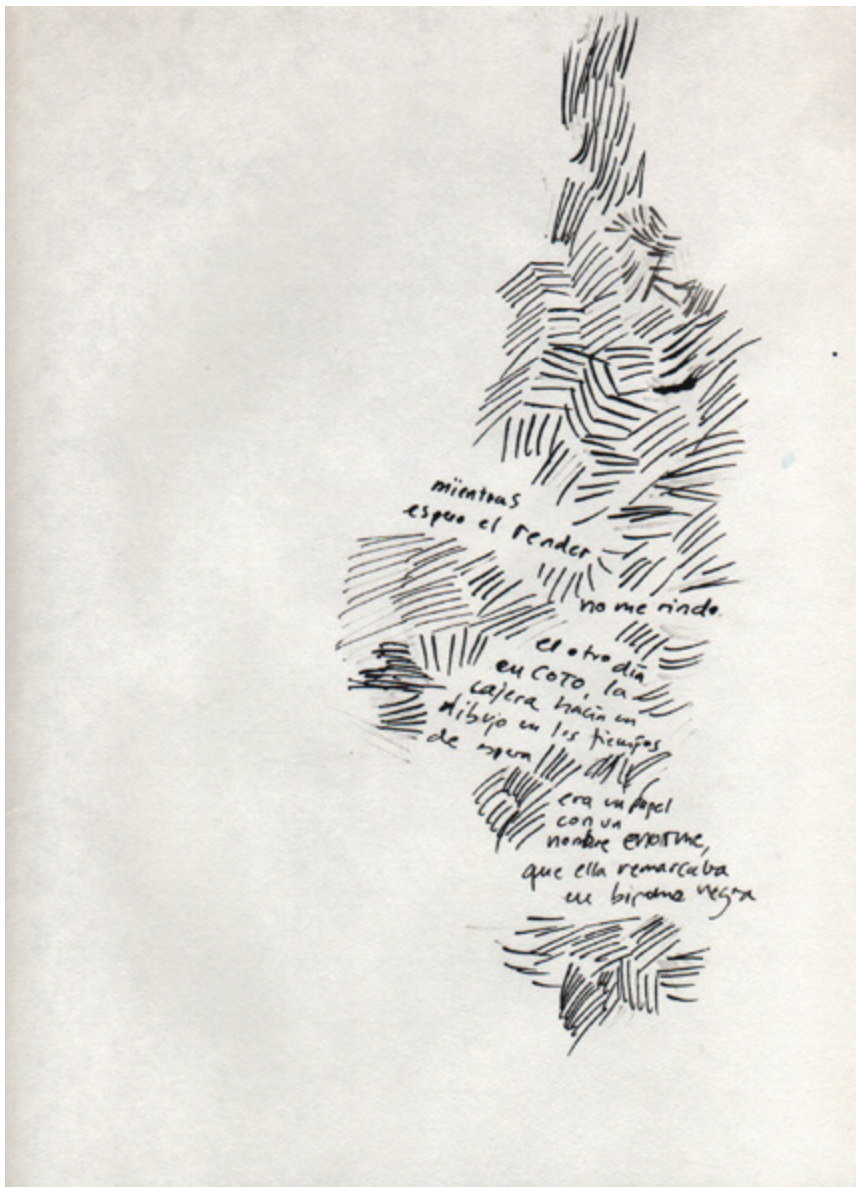 mientras
espero el render
no me rindo.
el otro día
en COTO, la
cajera hacía un
dibujo en los tiempos
de espera
era un papel
con un
nombre enorme,
que ella remarcaba
en birome negra